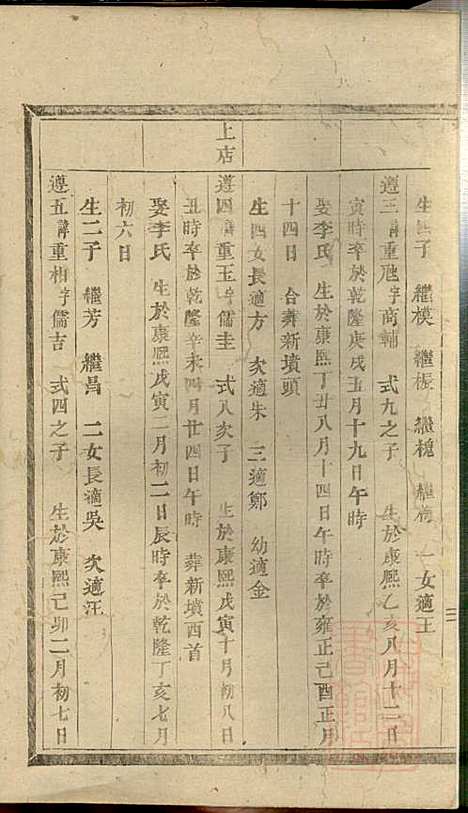 生四子 繼模 繼楨 繼槐 繼 一女適王
遵三諱重 字商輔 式九之子 生於康熙乙亥八月十二日
寅時卒於乾隆庚戌五月十九日午時
娶李氏 生於康熙丁丑八月十四日午時卒於雍正己酉正月
十四日 合葬新墳頭
生四女長適方 次適朱 三適鄭 幼適金
上店
遵四諱重玉字儒圭 式八次子 生於康熙戊寅十月初八日
丑時卒於乾隆辛未四月廿四日午時 葬新墳西首
娶李氏 生於康熙戊寅二月初二日辰時卒於乾隆丁亥七月
初六日
生二子 繼芳 繼昌 二女長適吳 次適汪
遵五諱重相字儒吉 式四之子 生於康熙己卯二月初七日